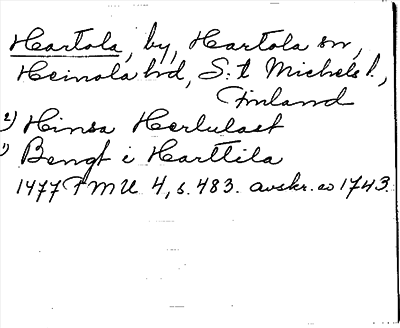 Hartola, by, Hartola sn,
Heinola hd, S:t Michels l.,
Finland
2) Hinsa Herlulast
1) Bengt i Harttila
1477 FMU 4, s. 483. avskr. av 1743.